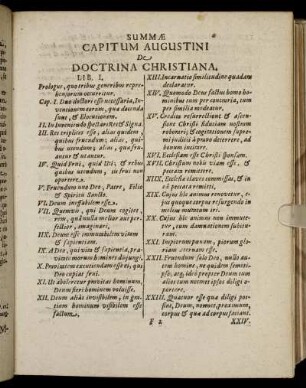 SUMMÆ
CAPITUM AUGUSTINI
De
DOCTRINA CHRISTIANA.
LIB. I.
Prologus, quo tribus generibus repre-
hensorum occurritur.
Cap. I. Duo doctori esse necessaria, In-
ventionem rerum, quæ docenda
sunt, & Elocutionem.
II. In Inveniendo spectari Res & Signa.
III. Res triplices esse, alias quidem,
quibus fruendum; alias, qui-
bus utendum; alias, quæ fru-
antur & utantur.
IV. Quid Frui, quid Uti; & rebus
quibus utendum, in frui non
oportere.
V. Fruendum uno Deo, Patre, Filio
& Spiritu Sancto.
VI. Deum ineffabilem esse.
VII. Quomvis, qui Deum cogitet
rem, quâ nulla melior aut per-
fectior, imaginari.
IIX. Deum esse incommutabilem vitam
& sapientiam.
IX. A Deo, qui vita & sapientia, pra-
vitate morum homines disjungi.
X. Pravitatem excutiendam esse iis, qui
Deo copulari frui.
XI. Ut aboleretur pravitas hominum,
Deum fieri hominem voluisse.
XII. Deum aliàs invisibilem, in gra-
tiam hominum visibilem esse
factum.
XIII. Incarnatio similitudine quadam
declaratur.
XIV. Quomodo Deus factus homo ho-
minibus tum per contraria, tum
per similia medeatur.
XV. Credita resurrectione & ascen-
sione Christi fiduciam nostram
roborari; & cogitatione supremi
judicii à pravo deterreri, ad
bonum incitari.
XVI. Ecclesiam esse Christi sponsam.
XVII. Christum nobis viam esse, &
peccata remittere.
XIIX. Ecclesiæ claves commissas, & in
eâ peccata remitti.
XIX. Captu hîc animos renovatur, ri-
pis quoque corpus resurgendo in
melius mutatum iri.
XX. Quisi hîc animus non immute-
tur, eum damnationem subitu-
rum.
XXI. Impiorum pœnam, piorum glo-
riam æternam esse.
XXII. Fruendum solo Deo, nullo au-
tem homine, ne quidem femetip-
so; atq; ideo propter Deum tam
alios tum nosmet ipsos diligi o-
portere.
XXIII. Quatuor esse quæ diligi pos-
sint, Deum, nosmet, proximum,
corpus & quæ ad corpus faciunt.
F 2 XXIV.